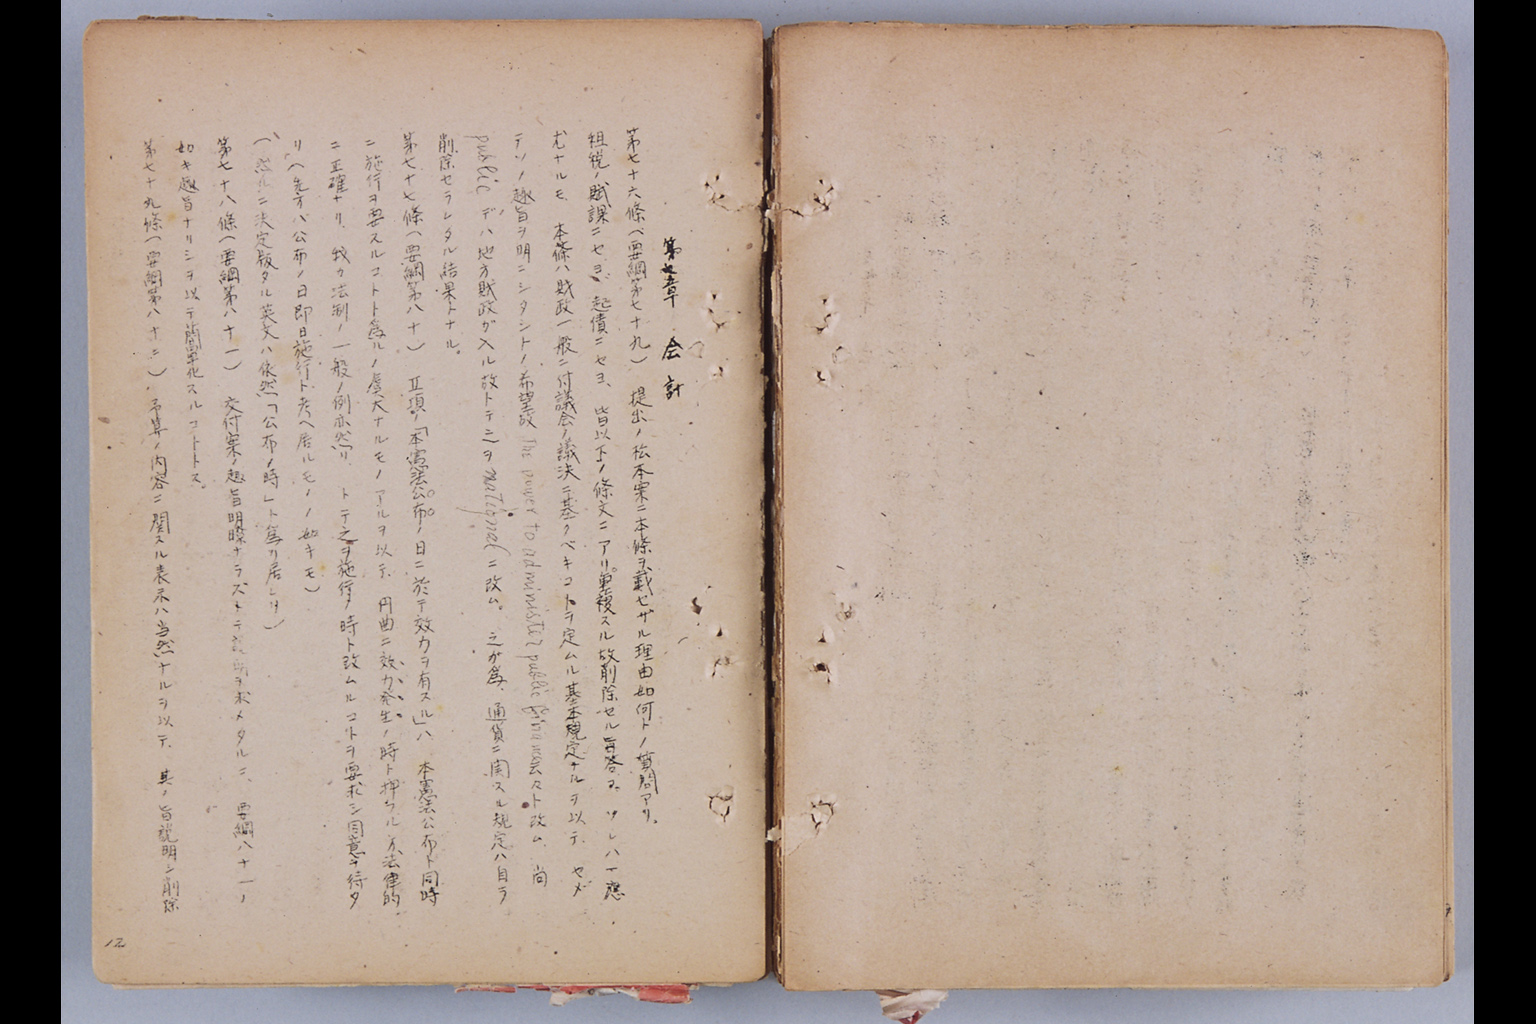 第七章 会計
第七十六條(要綱第七十九) 提出ノ松本案ニ本條ヲ載セザル理由如何トノ質問アリ。
租税ノ賦課ニセヨ、起債ニセヨ、皆以下ノ條文ニアリ重複スル故削除セル旨答フ。ソレハ一應
尤ナルモ、本條ハ財政一般ニ付議会ノ議決ニ基クベキコトヲ定ムル基本規定ナルヲ以テ、セメ
テソノ趣旨ヲ明ニシタシトノ希望故 The power to administer public finance云々ト改ム。尚
public デハ地方財政ガ入ル故トテ之ヲ national ニ改ム。之ガ為、通貨ニ関スル規定ハ自ラ
削除セラレタル結果トナル。
第七十七條(要綱第八十) Ⅱ項ノ「本憲法公布ノ日ニ於テ效力ヲ有スル」ハ 本憲法公布ト同時
ニ施行ヲ要スルコトト為ルノ厖大ナルモノアルヲ以テ、円曲ニ效力発生ノ時ト押ヘル方法律的
ニ正確ナリ、我カ法制ノ一般ノ例亦然リ、トテ之ヲ施行ノ時ト改ムルコトヲ要求シ同意ヲ得タ
リ(先方ハ公布ノ日即日施行ト考ヘ居ルモノノ如キモ)
(然ルニ決定版タル英文ハ依然「公布ノ時」ト為リ居レリ)
第七十八條(要綱第八十一) 交付案ノ趣旨明瞭ナラズトテ説明ヲ求メタルニ、要綱八十一ノ
如キ趣旨ナリシヲ以テ簡単化スルコトトス。
第七十九條(要綱第八十二) 予算ノ内容ニ関スル表示ハ当然ナルヲ以テ、其ノ旨説明シ削除
12